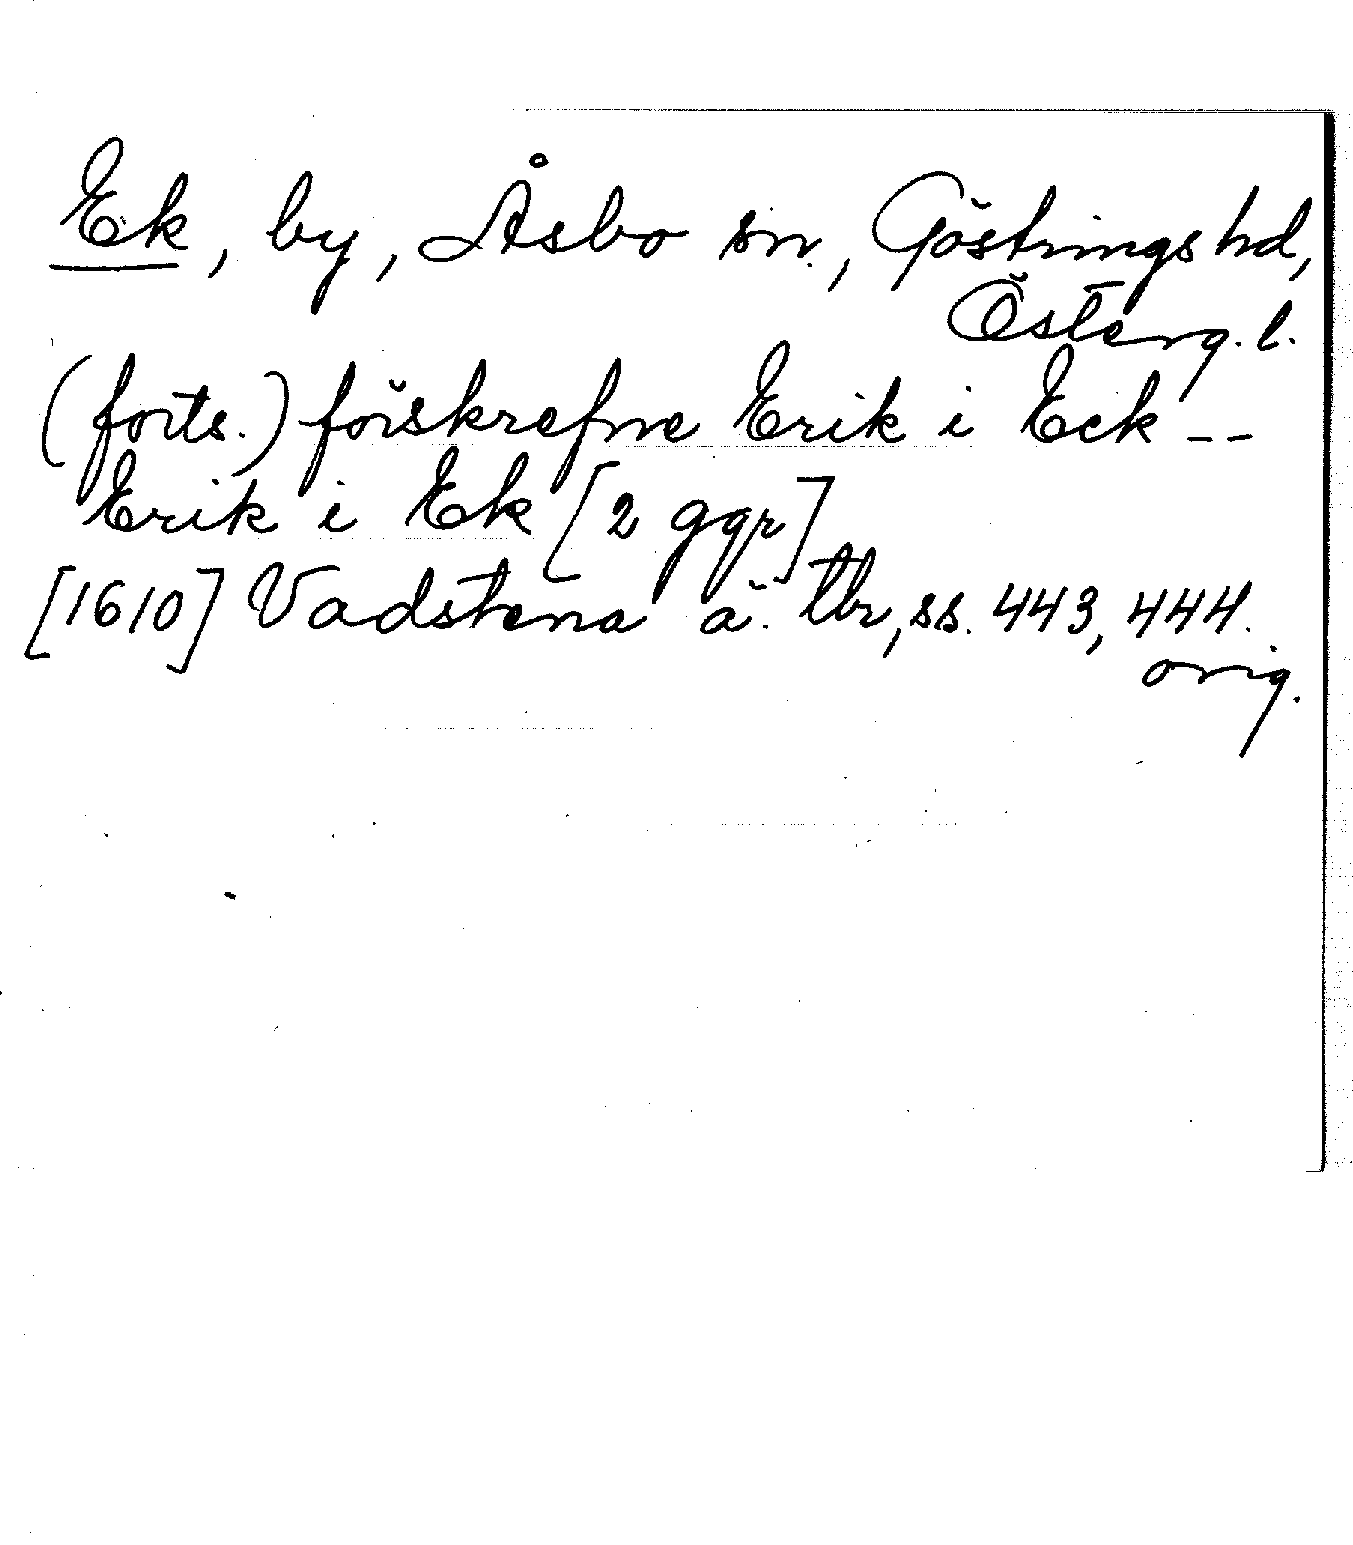 Ek, by, Åsbo sn., Göstrings hd,
Österg. l.
(forts.) förskrefne Erik i Eck --
Erik i Ek [2 ggr]
[1610] Vadstena ä. tbr, ss. 443, 444.
orig.